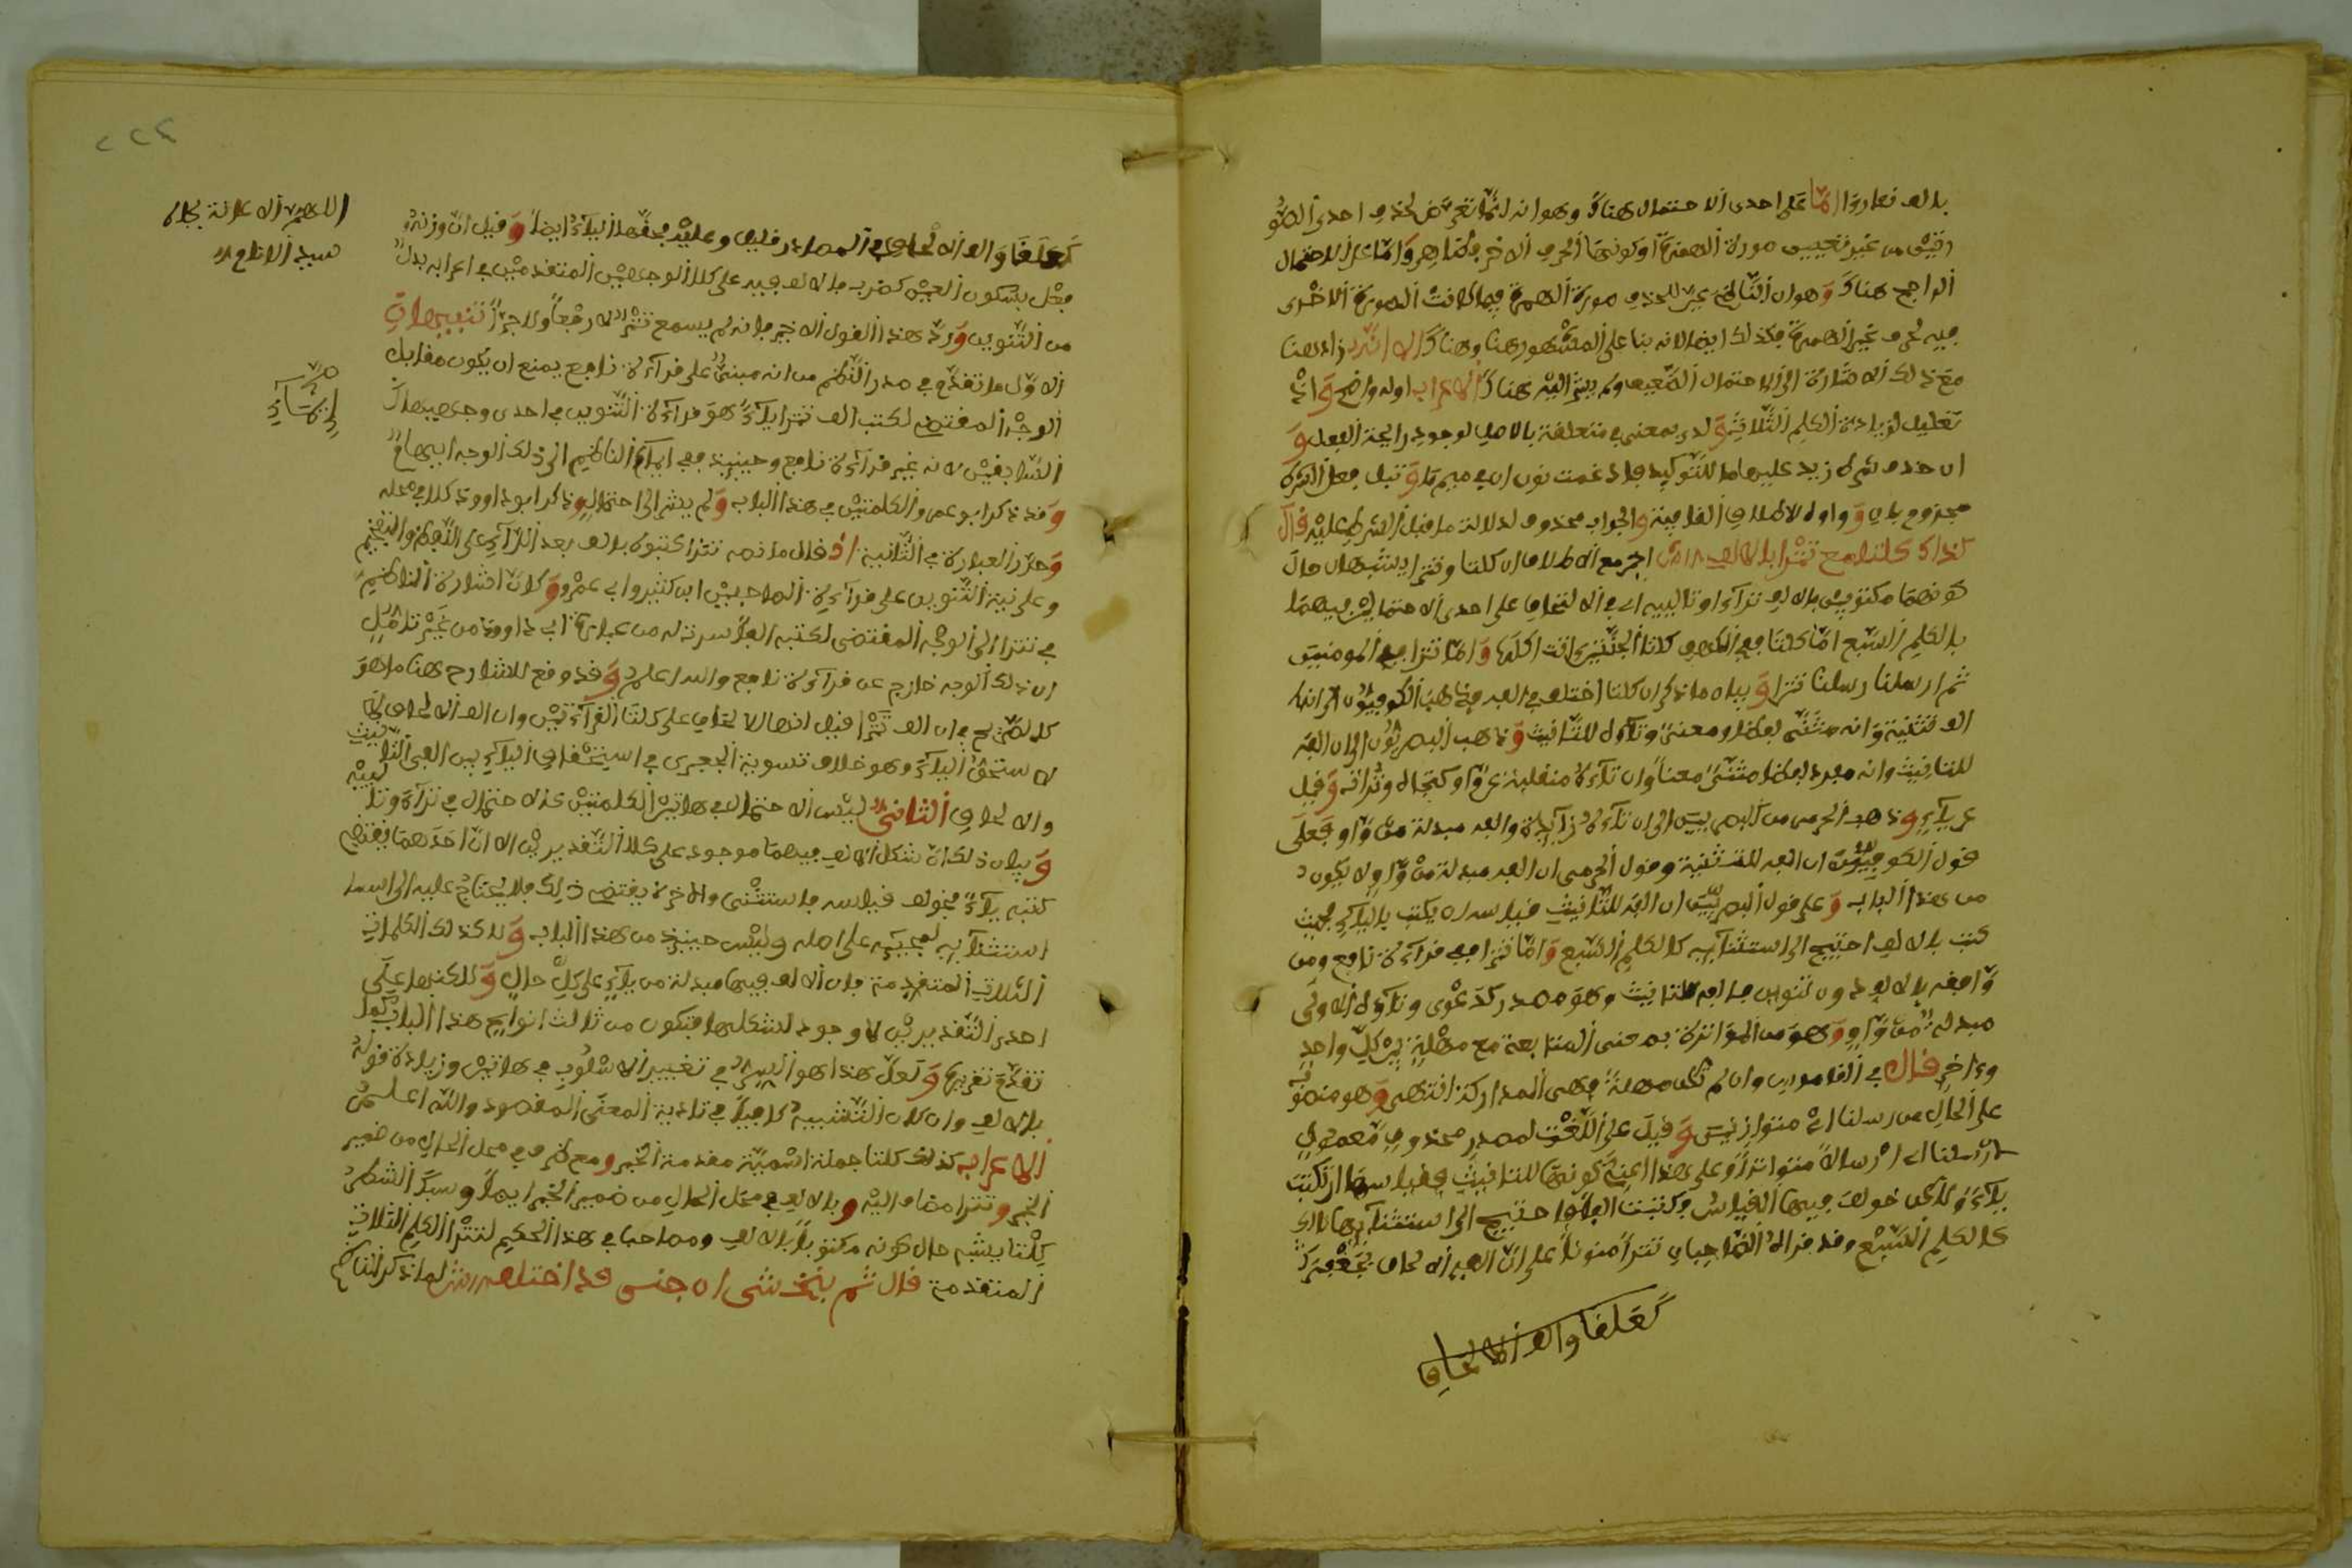 بالف فعاروا اما على احدى الاحتمال هناك وهو انه لما تعرض لحذف احدى الصور
رفيش من غير تعيين صورة الهمزة او كونها الحرف الاخر فظاهر واما على الاحتمال
الراجح هناك وهو ان الناظم عين للحذف صورة الهمزة فيما كانت الصورة الاخرى
فيه لحرف غير الهمزة فكذلك ايضا لانه بنا على المشهور هنا وهناك الا انه زاد هنا
مع ذلك الاشارة الى الاحتمال الضعيف ولم يشر اليه هناك الاعراب اوله واضح وان
تعليل لزيادة الكلم الثلاث ولدى بمعنى في متعلقة بالاصل لوجود رايحة الفعل و
ان حذف شرط زيد عليها ما للتوكيد فادغمت نون ان في ميم ما وتبل فعل الشرط
مجزوم بان وواوه لاطلاق القافية والجواب محذوف لدلالة ما قبل الشرط عليه قال
كذاك كلتا مع تترا بالالف اخبر مع الاطلاق ان كلتا وتترا يشبهان حال
كونهما مكتوبين بالالف تراءا وتاليه اي في الالتحاق على احدى الاحتمالين فيهما
بالكلم السبع اما كلتا ففي الكهف كلتا الجنتين اتت اكلها واما تترا ففي المومنين
ثم ارسلنا رسلنا تترا وبيان ما ذكر ان كلتا اختلف في الفه فذهب الكوفيون الى انها
الف تثنية وانه مثنى لفظا ومعنى وتاوه للتانيث وذهب البصريون الى ان الفه
للتانيث وانه مفرد لفظا مثنى معنا وان تاءه منقلبة عن واو كتجاه وتراث وقيل
عن ياء وذهب الجرمي من البصريين الى ان تاءه زايدة والفه مبدلة من واو فعلى
قول الكوفيين ان الفه للتثنية وقول الجرمي ان الفه مبدلة من واو لا يكون
من هذا الباب وعلى قول البصريين ان الفه للتانيث قياسه ان يكتب بالياء فحيث
كتب بالالف احتيج الى استثنايه كالكلم السبع واما تترا ففي قراءة نافع ومن
وافقه بالالف دون تنوين فالفه للتانيث وهو مصدر كدعوى وتاوه الاولى
مبدلة من واو وهو من المواترة بمعنى المتابعة مع مهلة بين كل واحد
وءاخر قال في القاموس وان لم تكن مهلة فهي المداركة انتهى وهو منصوب
على الحال من رسلنا اي متواترين وقيل على النعت لمصدر محذوف معمول
لارسلنا اي ارسالا متواترا وعلى هذا اعني كونها للتانيث فقياسها ان تكتب
ياء ولاكن خولف فيها القياس وكتبت الفا واحتيج الى استثنايها
كالكلم السبع وقد قراه الصاحبان تترا منونا على ان الفه الالحاق بجعفر
كعلقا والف الالحاق
اللهم الاعانة بجاه
سيد الانام
كعلقا والف الالحاق في المصادر قليل وعليه فحقها الياء ايضا وقيل ان وزنه
فعل بسكون العين كضرب فالالف فيه على كلا الوجهين المتقدمين في اعرابه بدل
من التنوين ورد هذا القول الاخير بانه لم يسمع تتر لا رفعا ولا جرا تنبيهات
الاول ما تقدم في صدر النظم من انه مبني على قراءة نافع يمنع ان يكون مقابل
الوجه المقتضي لكتب الف تترا ياء هو قراءة التنوين في احدى وجهيها
السابقين لانه غير قراءة نافع وحينيذ ففي ايماء الناظم الى ذلك الوجه ابهام
وقد ذكر ابو عمرو الكلمتين في هذا الباب ولم يشر الى احتمال وذكر ابو داوود كلا في محله
وحرر العبارة في الثانية اذ قال ما نصه تترا كتبوه بالف بعد الراء على اللفظ والتفخيم
وعلى نية التنوين على قراءة الصاحبين ابن كثير وابي عمرو وكان اشارة الناظم
في تترا الى الوجه المقتضي لكتبه الفا سرت له من عبارة ابي داوود من غير تامل
ان ذلك الوجه خارج عن قراءة نافع والله اعلم وقد وقع للشارح هنا ما هو
كالصريح في ان الف تترا قيل انها للالحاق على كلتا القراءتين وان الف الالحاق
لا ستحق الياء وهو خلاف تسوية الجعبري في استحقاق الياء بين الفي التانيث
والالحاق الثاني ليس الاحتمال في هاتين الكلمتين كالاحتمال في تراءا وتاليه
وبيان ذلك ان شكل الالف فيهما موجود على كلا التقديرين الا ان احدهما يقتضي
كتبه ياء فخولف قياسه فاستثنى والاخر لا يقتضي ذلك فلا يحتاج عليه الى
استثنايه لمجييه على اصله وليس حينيذ من هذا الباب ولا كذلك الكلمات
الثلاث المتقدمة فان الالف فيها مبدلة من ياء على كل حال ولاكنها على
احدى التقديرين لا وجود لشكلها فتكون من ثالث انواع هذا الباب كما
تقدم تقريره ولعل هذا هو السر في تغيير الاسلوب في هاتين وزيادة قوله
بالالف وان كان التشبيه كافيا في تادية المعنى المقصود والله اعلم
الاعراب كذاك كلتا جملة اسمية مقدمة الخبر ومع ظرف في محل الحال من ضمير
الخبر وتترا مضاف اليه وبالالف في محل الحال من ضمير الخبر ايضا وسبك الشطر
كلتا يشبه حال كونه مكتوبا بالالف ومصاحبا في هذا الحكم لتترا الكلم الثلاث
المتقدمة قال ثم بنخشى ان جنى قد اختلف لما ذكر الناظم